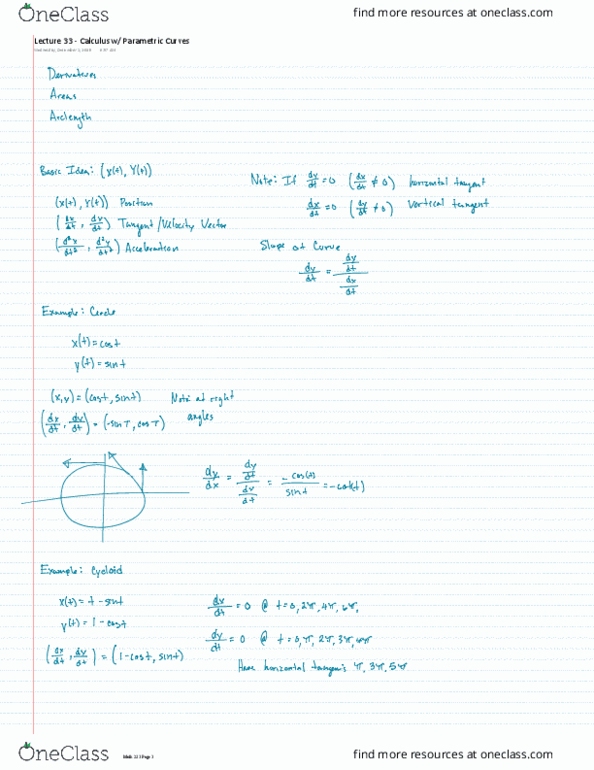 OneClass
find more resources at oneclass.com
Lecture 33 - Calculus w/ Parametric Curves
Derivatives
Areas
Arclength
Basic Idea: (x(t), Y(t))
(x(t), y(t)) Position
(dx/dt, dy/dt) Tangent/Velocity Vector
(d²x/dt², d²y/dt²) Acceleration
Note: If dy/dt = 0 (dx/dt ≠ 0) horizontal tangent
dx/dt = 0 (dy/dt ≠ 0) vertical tangent
Slope of Curve
dy/dt = (dy/dt)/(dx/dt)
Example: Circle
x(t) = cos t
y(t) = sin t
(x,y) = (cos t, sin t)
Note: at right
angles
(dx/dt, dy/dt) = (-sin T, cos T)
dy/dx = (dy/dt)/(dx/dt) = -cos(t)/sin t = -cot(t)
Example: Cycloid
x(t) = t - sin t
y(t) = 1 - cos t
(dx/dt, dy/dt) = (1 - cos t, sin t)
dx/dt = 0 @ t = 0, 2π, 4π, 6π,
dy/dt = 0 @ t = 0, π, 2π, 3π, 4π
Have horizontal tangents π, 3π, 5π
OneClass
find more resources at oneclass.com